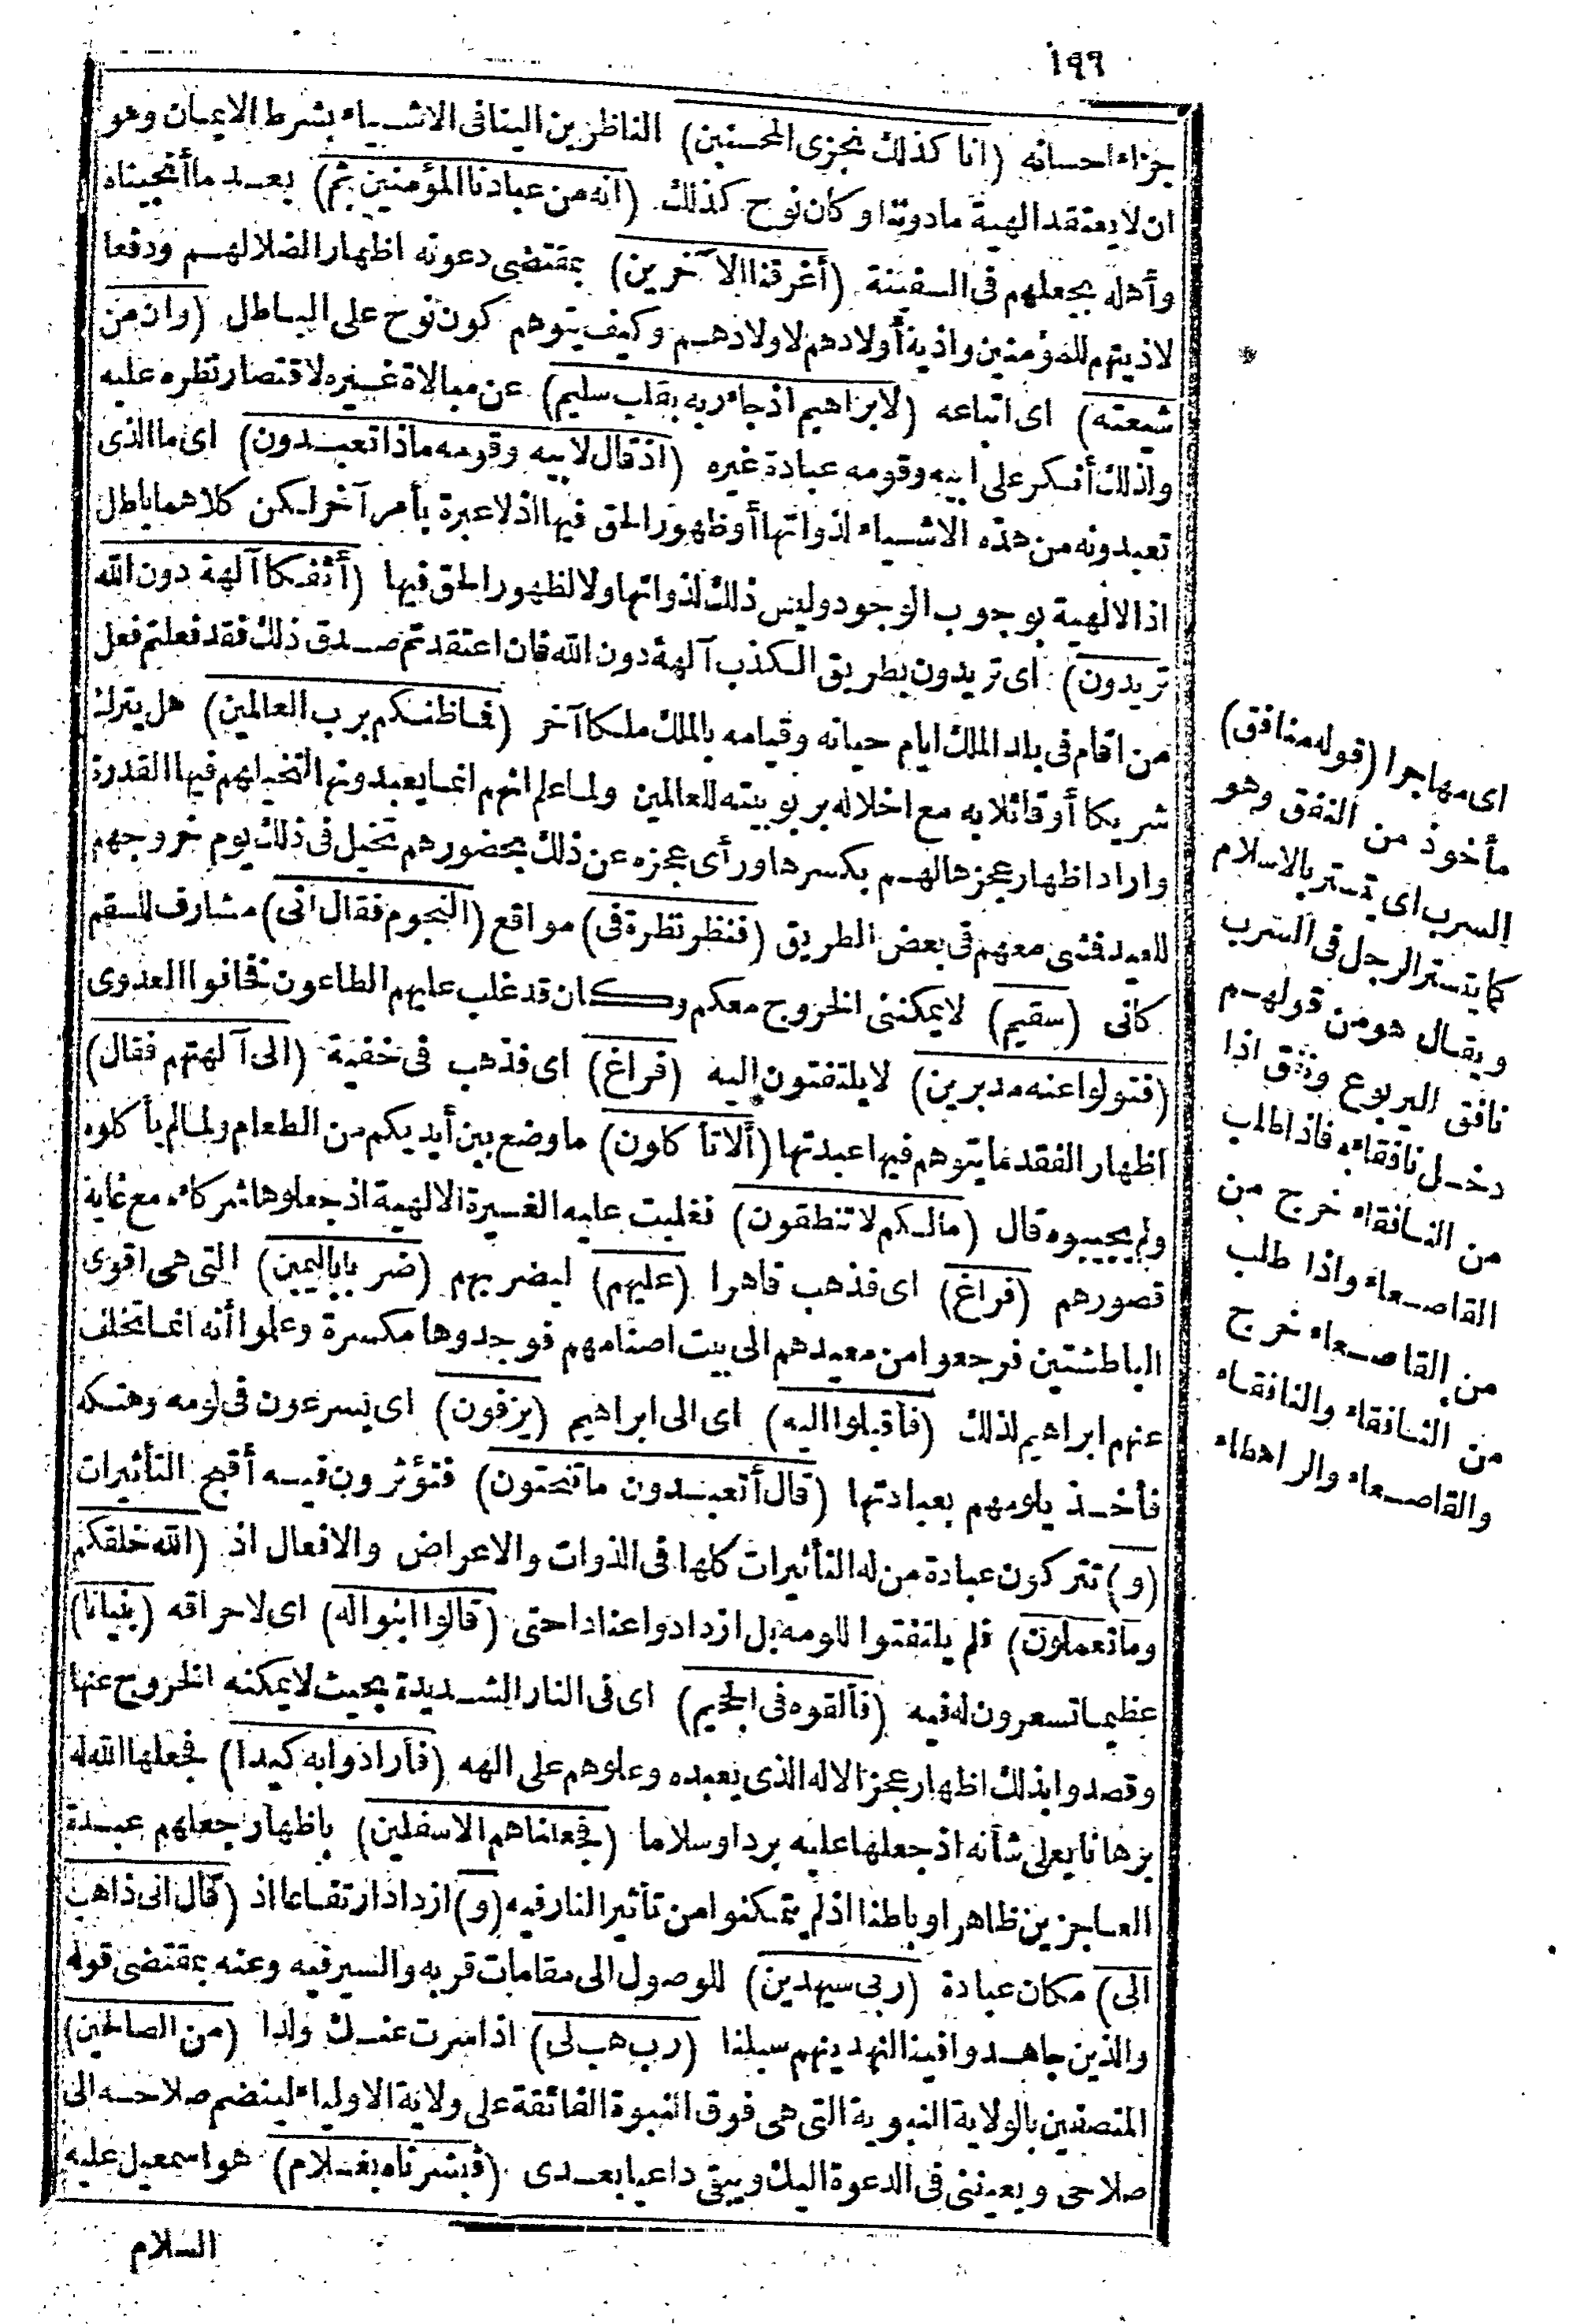 ١٩٦
جزاء احسانه (انا كذلك نجزى المحسنين) الناظرين الينا فى الاشياء بشرط الايمان وهو
ان لا يعتقد الهية ما دوننا وكان نوح كذلك (انه من عبادنا المؤمنين ثم) بعد ما أنجيناه
وأهله بجعلهم فى السفينة (أغرقنا الآخرين) بمقتضى دعوته اظهار الضلالهم ودفعا
لاذيتهم للمؤمنين واذية أولادهم لاولادهم وكيف يتوهم كون نوح على الباطل (وان من
شيعته) اى اتباعه (لابراهيم اذ جاء ربه بقلب سليم) عن مبالاة غيره لاقتصار نظره عليه
ولذلك أنكر على ابيه وقومه عبادة غيره (اذ قال لابيه وقومه ماذا تعبدون) اى ما الذى
تعبدونه من هذه الاشياء لذواتها أو ظهور الحق فيها اذ لا عبرة بأمر آخر لكن كلاهما باطل
اذ الالهية بوجوب الوجود وليس ذلك لذواتها ولا لظهور الحق فيها (أئفكا آلهة دون الله
تريدون) اى تريدون بطريق الكذب آلهة دون الله فان اعتقدتم صدق ذلك فقد فعلتم فعل
من اقام فى بلد الملك ايام حياته وقيامه بالملك ملكا آخر (فما ظنكم برب العالمين) هل يترك
شريكا أو قائلا به مع اخلاله بربوبيته للعالمين ولما علم انهم انما يعبدونها لتخيلهم فيها القدرة
واراد اظهار عجزها لهم بكسرها ورأى عجزه عن ذلك بحضورهم تخيل فى ذلك يوم خروجهم
للعيد فمشى معهم فى بعض الطريق (فنظر نظرة فى) مواقع (النجوم فقال انى) مشارف للسقم
كانى (سقيم) لا يمكننى الخروج معكم وكان قد غلب عليهم الطاعون فخافوا العدوى
(فتولوا عنه مدبرين) لا يلتفتون اليه (فراغ) اى فذهب فى خفية (الى آلهتهم فقال)
اظهار الفقد ما يتوهم فيها عبدتها (ألا تأكلون) ما وضع بين أيديكم من الطعام ولما لم يأكلوه
ولم يجيبوه قال (مالكم لا تنطقون) فغلبت عليه الغيرة الالهية اذ جعلوها شركاء مع غاية
قصورهم (فراغ) اى فذهب قاهرا (عليهم) ليضربهم (ضربا باليمين) التى هى اقوى
الباطشتين فرجعوا من معيدهم الى بيت اصنامهم فوجدوها مكسرة وعلموا أنه انما تخلف
عنهم ابراهيم لذلك (فأقبلوا اليه) اى الى ابراهيم (يزفون) اى يسرعون فى لومه وهتكه
فأخذ يلومهم بعبادتها (قال أتعبدون ما تنحتون) فتؤثرون فيه أقبح التأثيرات
(و) تتركون عبادة من له التأثيرات كلها فى الذوات والاعراض والافعال اذ (الله خلقكم
وما تعملون) فلم يلتفتوا للومه بل ازدادوا عنادا حتى (قالوا ابنوا له) اى لاحراقه (بنيانا)
عظيما تسعرون له فيه (فألقوه فى الجحيم) اى فى النار الشديدة بحيث لا يمكنه الخروج عنها
وقصدوا بذلك اظهار عجز الاله الذى يعبده وعلوهم على الهه (فأرادوا به كيدا) فجعلها الله له
برهانا يعلى شأنه اذ جعلها عليه بردا وسلاما (فجعلناهم الاسفلين) باظهار جعلهم عبدة
العاجزين ظاهرا وباطنا اذ لم يتمكنوا من تأثير النار فيه (و) ازداد ارتفاعا اذ (قال انى ذاهب
الى) مكان عبادة (ربى سيهدين) للوصول الى مقامات قربه والسير فيه وعنه بمقتضى قوله
والذين جاهدوا فينا لنهدينهم سبلنا (رب هب لى) اذا سرت عنك ولدا (من الصالحين)
المتصفين بالولاية النبوية التى هى فوق النبوة الفائقة على ولاية الاولياء لينضم صلاحه الى
صلاحى ويعيننى فى الدعوة اليك ويبقى داعيا بعدى (فبشرناه بغلام) هو اسمعيل عليه
السلام
اى مهاجرا (قوله منافق)
مأخوذ من النفق وهو
السرب اى يتستر بالاسلام
كما يتستر الرجل فى السرب
ويقال هو من قولهم
نافق اليربوع ونفق اذا
دخل نافقاءه فاذا طلب
من النافقاء خرج من
القاصعاء واذا طلب
من القاصعاء خرج
من النافقاء والنافقاء
والقاصعاء والراهطاء